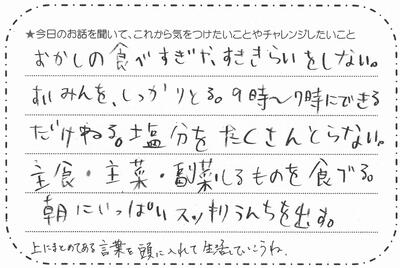 ★今日のお話を聞いて、これから気をつけたいことやチャレンジしたいこと
おかしの食べすぎや、すききらいをしない。
すいみんを、しっかりとる。9時~7時にできる
だけねる。塩分をたくさんとらない。
主食・主菜・副菜しるものを食べる。
朝にいっぱいスッキリうんちを出す。
上にまとめてある言葉を頭に入れて生活していこうね。